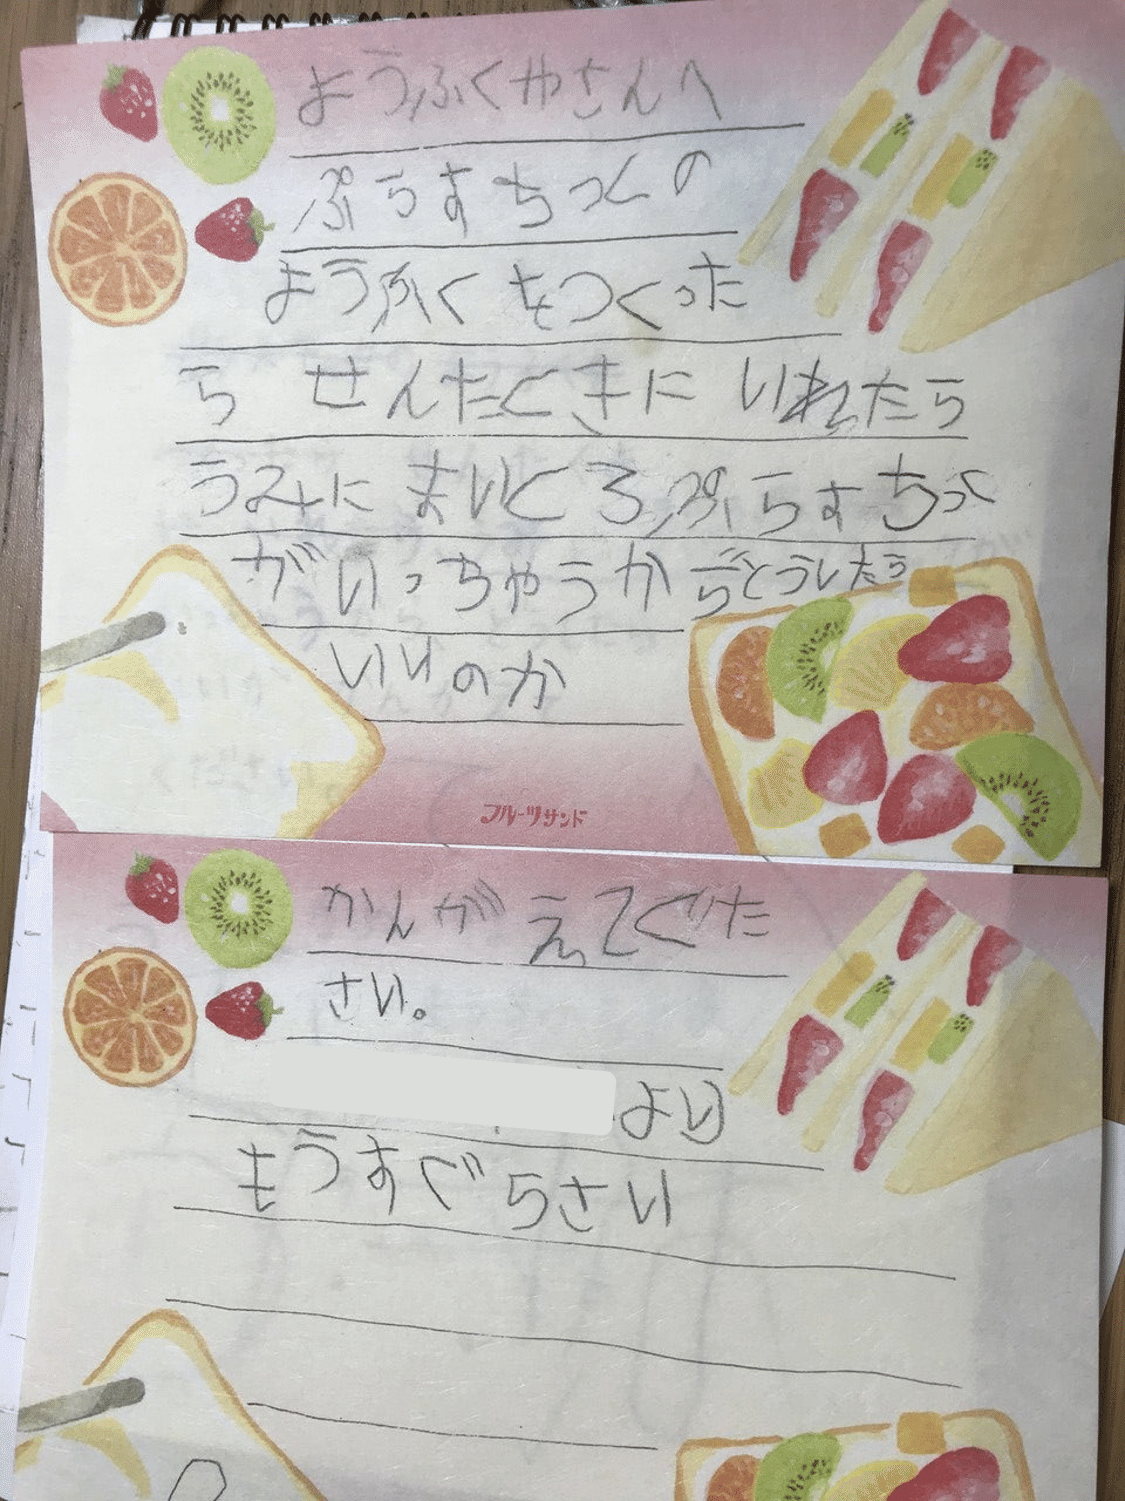 ようふくやさんへ
ぷらすちっくの
ようふくをつくった
ら せんたくきに いれたら
うみに まいくろぷらすちっく
がいっちゃうからどうしたら
いいのか
フルーツサンド
かんがえてくだ
さい。
より
もうすぐ5さい